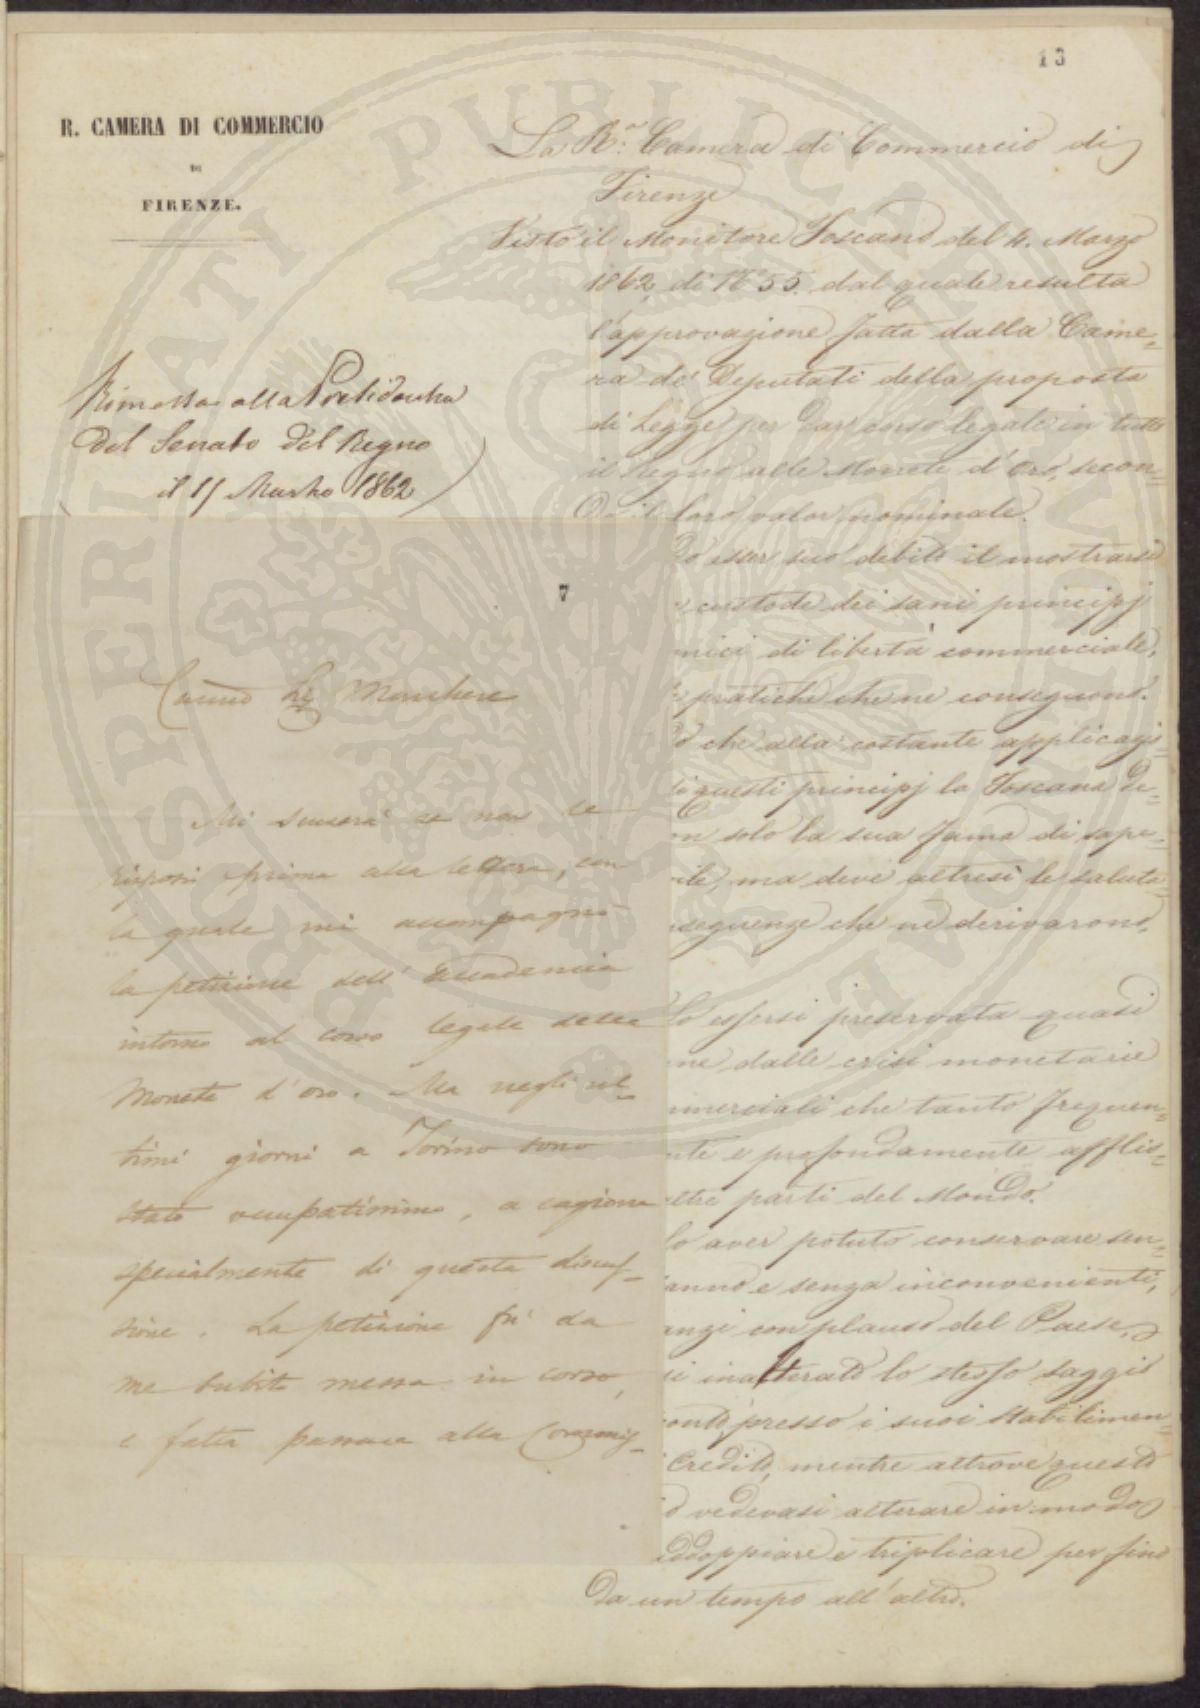 13
R. CAMERA DI COMMERCIO
DI
FIRENZE.
La R.a Camera di Commercio di
Firenze
Visto il Monitore Toscano del 4. Marzo
1862, di N.o 55. dal quale resulta
l'approvazione fatta dalla Came=
ra de' Deputati della proposta
di Legge per dar corso legale in tutto
il Regno alle Monete d'Oro, secon=
do il loro valor nominale.
do esser suo debito il mostrarsi
custode dei sani principj
mici di libertà commerciale,
pratiche che ne conseguono.
o che alla costante applicazi=
di questi principj la Toscana de=
on solo la sua fama di sape=
vile, ma deve altresì le saluta
nseguenze che ne derivarono,
Lo essersi preservata quasi
ne dalle crisi monetarie
mmerciali che tanto frequen=
nte e profondamente afflis=
altre parti del Mondo.
lo aver potuto conservare sen=
anno e senza inconvenienti,
anzi con plauso del Paese,
si inalterato lo stesso saggio
conto, presso i suoi Stabilimen
Credito, mentre altrove questo
o vedevasi alterare in modo
addoppiare e triplicare per fino
da un tempo all'altro.
Rimessa alla Presidenza
del Senato del Regno
il 11 Marzo 1862
7
Sig Marchese
Mi scuserà se non le
risposi prima alla lettera, con
la quale mi accompagnò
la petizione dell'Accademia
intorno al corso legale delle
Monete d'oro. Ma negli ul=
timi giorni a Torino sono
stato occupatissimo, a cagione
specialmente di questa discus=
sione. La petizione fu da
me subito messa in corso,
e fatta passare alla Commis=
PROSPERITATI PUBLICAE